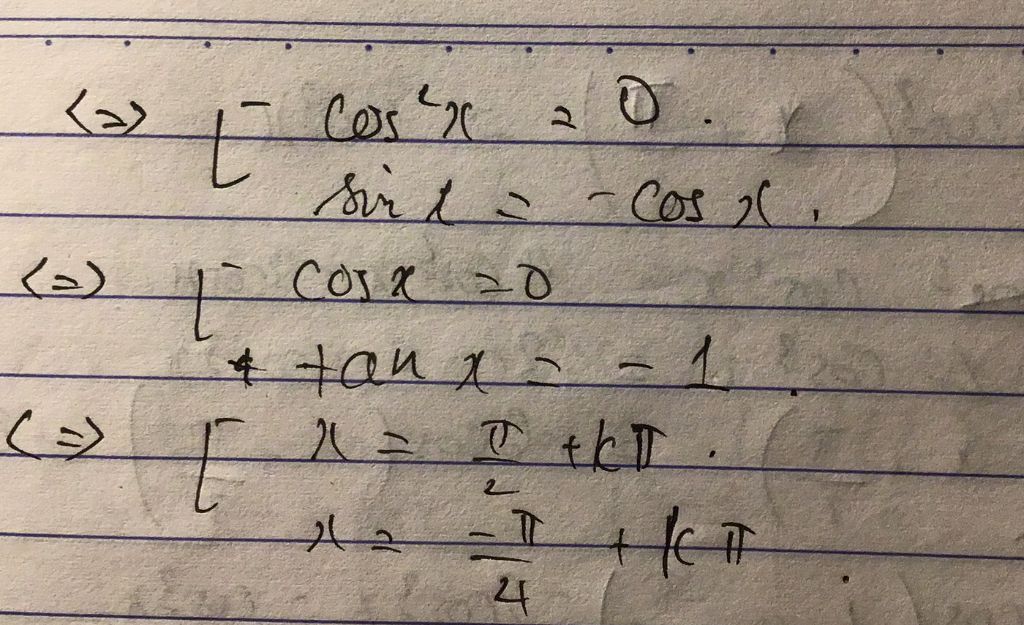 <=> [ cos²x = 0.
sin x = -cos x.
<=> [ cos x = 0
tan x = -1.
<=> [ x = π/2 + kπ.
x = -π/4 + kπ.